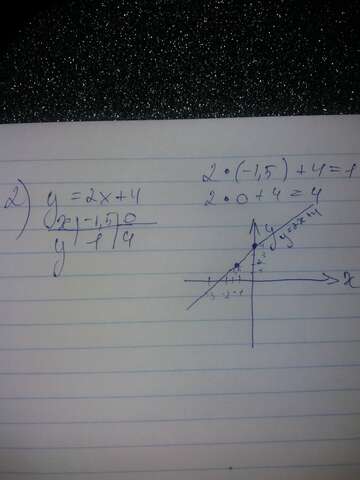 2) y = 2x+4
x | -1,5 | 0
y | 1 | 4
2•(-1,5)+4=1
2•0+4=4
y
y=2x+4
x
-3 -2 -1